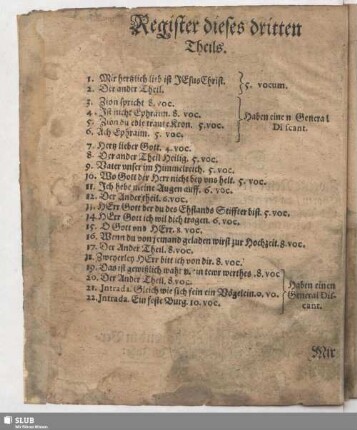 Register dieses dritten
Theils.
1. Mir hertzlich lieb ist JEsus Christ.
2. Der ander Theil.
5. vocum.
3. Zion spricht 8. voc.
4. Ist nicht Ephraim. 8. voc.
5. Zion du edle traute Kron. 5. voc.
6. Ach Ephraim. 5. voc.
Haben einen General
Discant.
7. Herr lieber Gott. 4. voc.
8. Der ander Theil Heilig. 5. voc.
9. Vater unser im Himmelreich. 5. voc.
10. Wo Gott der Herr nicht bey uns helt. 5. voc.
11. Ich hebe meine Augen auff. 6. voc.
12. Der Ander theil. 6. voc.
13. HErr Gott der du des Ehstands Stiffter bist. 5. voc.
14. HErr Gott ich wil dich 6. voc.
15. O Gott und HErr. 8. voc.
16. Wenn du von jemand geladen wirst zur Hochzeit. 8. voc.
17. Der Ander Theil. 8. voc.
18. Zweyerley HErr bitt ich von dir. 8. voc.
19. Das ist gewißlich wahr u. ein tewr werthes. 8. voc
20. Der Ander Theil. 8. voc.
21. Intrada. Gleich wie sich fein ein Vögelein. 10. vo.
22. Intrada. Ein feste Burg. 10. voc.
Haben einen
General Dis-
cant.
Mir
SLUB
Wir führen Wissen.